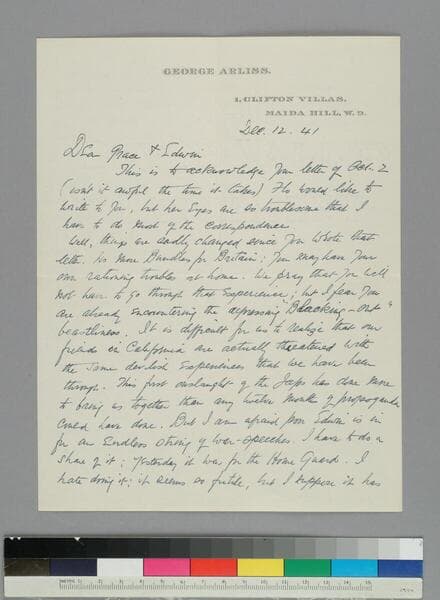 GEORGE ARLISS.
1, CLIFTON VILLAS,
MAIDA HILL, W. 9.
Dec. 12. 41
Dear Grace & Edwin
This is to acknowledge your letter of Oct. 2
(isn't it awful the time it takes) Flo would like to
write to you, but her eyes are so troublesome that I
have to do most of the correspondence.
Well, things are sadly changed since you wrote that
letter. No more Bundles for Britain: you may have your
own rationing troubles at home. We pray that you will
not have to go through that experience; but I fear you
are already encountering the depressing "Blacking-out"
beastliness. It is difficult for us to realize that our
friends in California are actually threatened with
the same devilish experiences that we have been
through. This first onslaught of the Japs has done more
to bring us together than any twelve months of propaganda
could have done. But I am afraid poor Edwin is in
for an endless string of war-speeches. I have to do a
share of it; yesterday it was for the Home Guards. I
hate doing it; it seems so futile, but I suppose it has